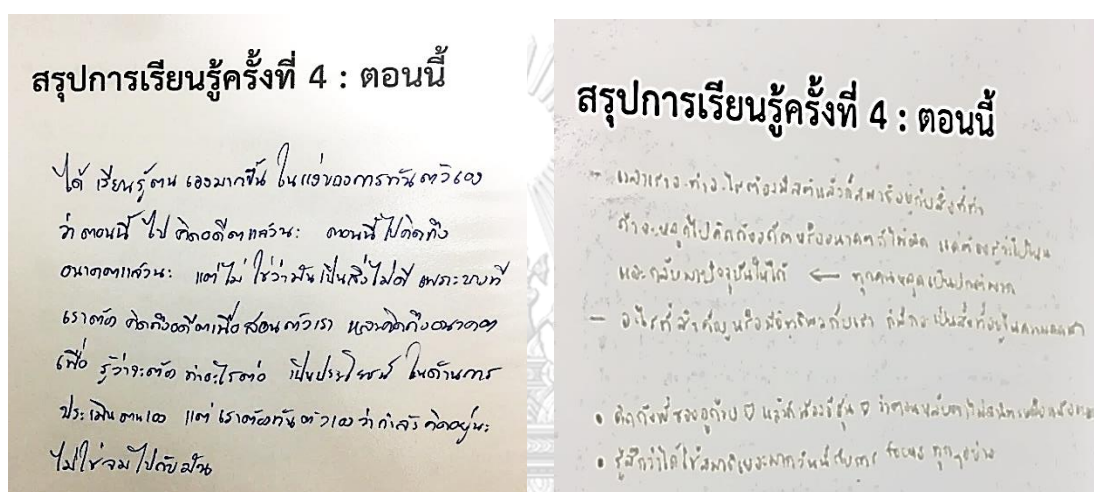 สรุปการเรียนรู้ครั้งที่ 4 : ตอนนี้
ได้ เรียนรู้ตน เองมากขึ้น ในแง่ของการทันตัวเอง
ว่าตอนนี้ ไป คิดอดีตแล้วนะ ตอนนี้ไปคิดถึง
อนาคตแล้วนะ แต่ไม่ ใช่ว่ามันเป็นสิ่งไม่ดี เพราะบางที
เราต้อง คิดถึงอดีตเพื่อสอนตัวเรา หลายคิดถึงอนาคต
เพื่อ รู้ว่าจะต้อง ทำอะไรต่อ เป็นประโยชน์ ในด้านการ
ประเมินตนเอง แต่ เราต้องทันตัวเองว่ากำลัง คิดอยู่นะ
ไม่ใช่จมไปกับมัน
สรุปการเรียนรู้ครั้งที่ 4 : ตอนนี้
- เวลาเราจะทำอะไรต้องมีสติแล้วก็สมาธิอยู่กับสิ่งที่ทำ
ถ้าจะหลุดไปคิดถึงอดีตหรืออนาคตก็ไม่ผิด แต่ต้องรู้ว่าเป็น
และกลับมาปัจจุบันให้ได้ ← ทุกคนหลุดเป็นปกติมาก
- อะไรที่สำคัญหรือมีอิทธิพลกับเรา ก็มักจะเป็นสิ่งที่อยู่ในความคิดเรา
• ว่าตอนหลับตา
• รู้สึกว่าได้ใช้สมาธิเยอะมากวันนี้กับการ focus ทุกๆอย่าง